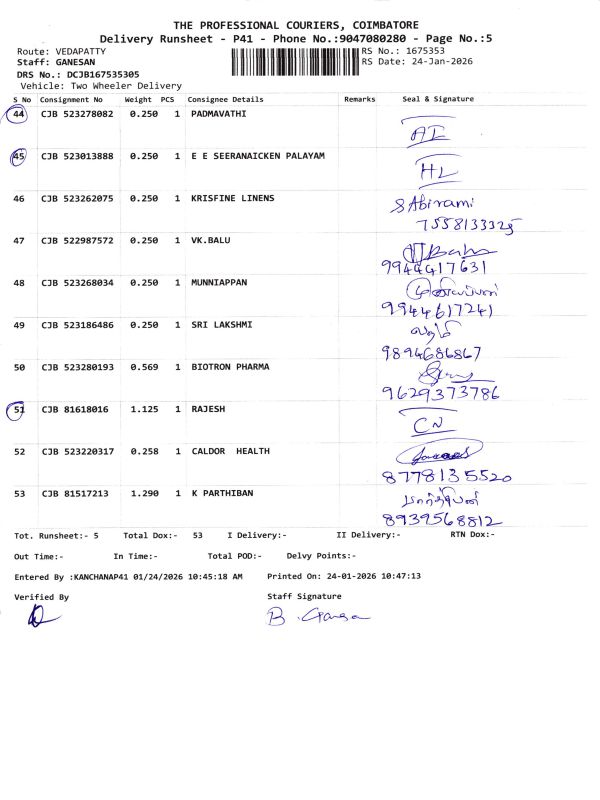 THE PROFESSIONAL COURIERS, COIMBATORE
Delivery Runsheet - P41 - Phone No.:9047080280 - Page No.:5
Route: VEDAPATTY RS No.: 1675353
Staff: GANESAN RS Date: 24-Jan-2026
DRS No.: DCJB167535305
Vehicle: Two Wheeler Delivery
S No Consignment No Weight PCS Consignee Details Remarks Seal & Signature
44 CJB 523278082 0.250 1 PADMAVATHI
AI
45 CJB 523013888 0.250 1 E E SEERANAICKEN PALAYAM
HL
46 CJB 523262075 0.250 1 KRISFINE LINENS S Abirami
7558133325
47 CJB 522987572 0.250 1 VK.BALU
9944417631
48 CJB 523268034 0.250 1 MUNNIAPPAN முனியப்பன்
9944617241
49 CJB 523186486 0.250 1 SRI LAKSHMI
9894686867
50 CJB 523280193 0.569 1 BIOTRON PHARMA
9629373786
51 CJB 81618016 1.125 1 RAJESH
CN
52 CJB 523220317 0.258 1 CALDOR HEALTH
8778135520
53 CJB 81517213 1.290 1 K PARTHIBAN பார்த்திபன்
8939568812
Tot. Runsheet:- 5 Total Dox:- 53 I Delivery:- II Delivery:- RTN Dox:-
Out Time:- In Time:- Total POD:- Delvy Points:-
Entered By :KANCHANAP41 01/24/2026 10:45:18 AM Printed On: 24-01-2026 10:47:13
Verified By Staff Signature
B. Ganesa